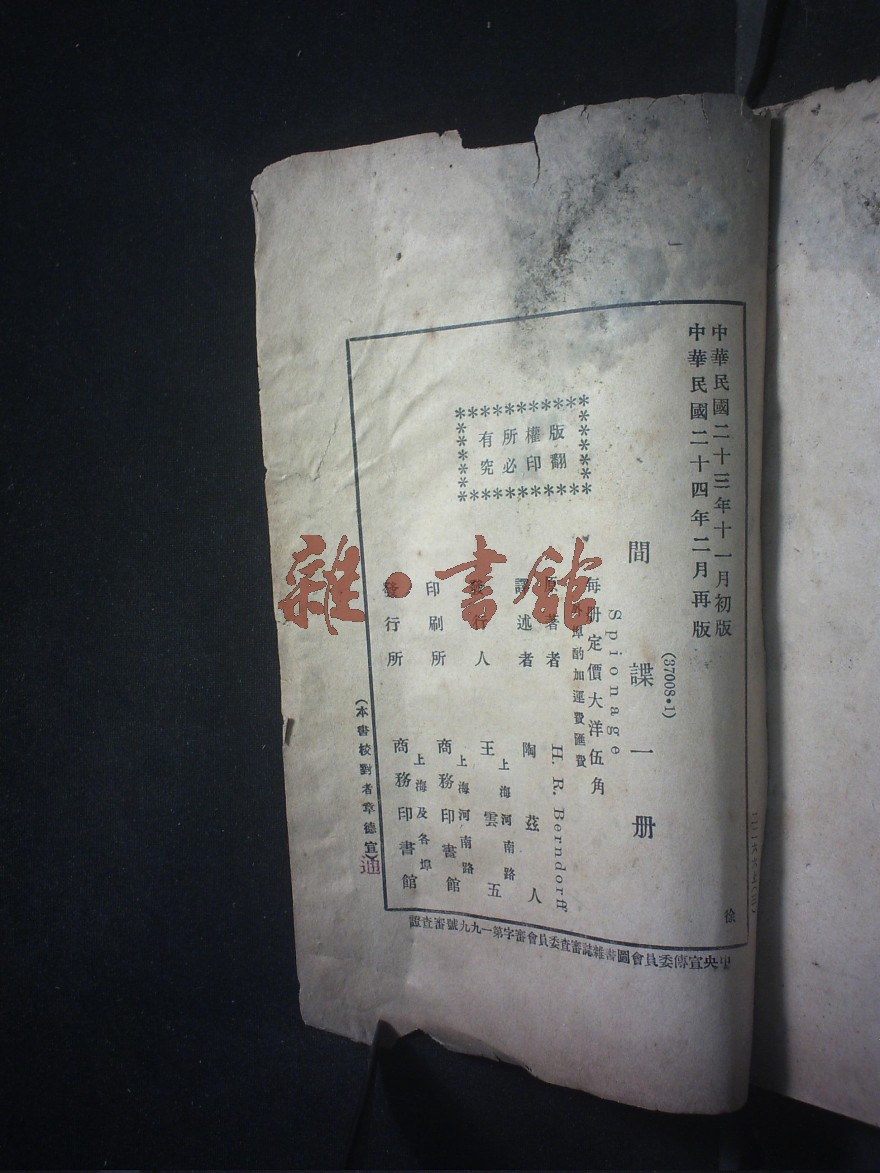 中華民國二十三年十一月初版
中華民國二十四年二月再版
(37008·1)
間諜一册
Spionage
每册定價大洋伍角
外埠酌加運費匯費
原著者 H. R. Berndorff
譯述者 陶茲人
發行人 王雲五
上海河南路
印刷所 商務印書館
上海河南路
發行所 商務印書館
上海及各埠
版權所有
翻印必究
(本書校對者章德宣)
迪
徐
中央宣傳委員會圖書雜誌審查委員會審字第一九九號審查證
雜·書館